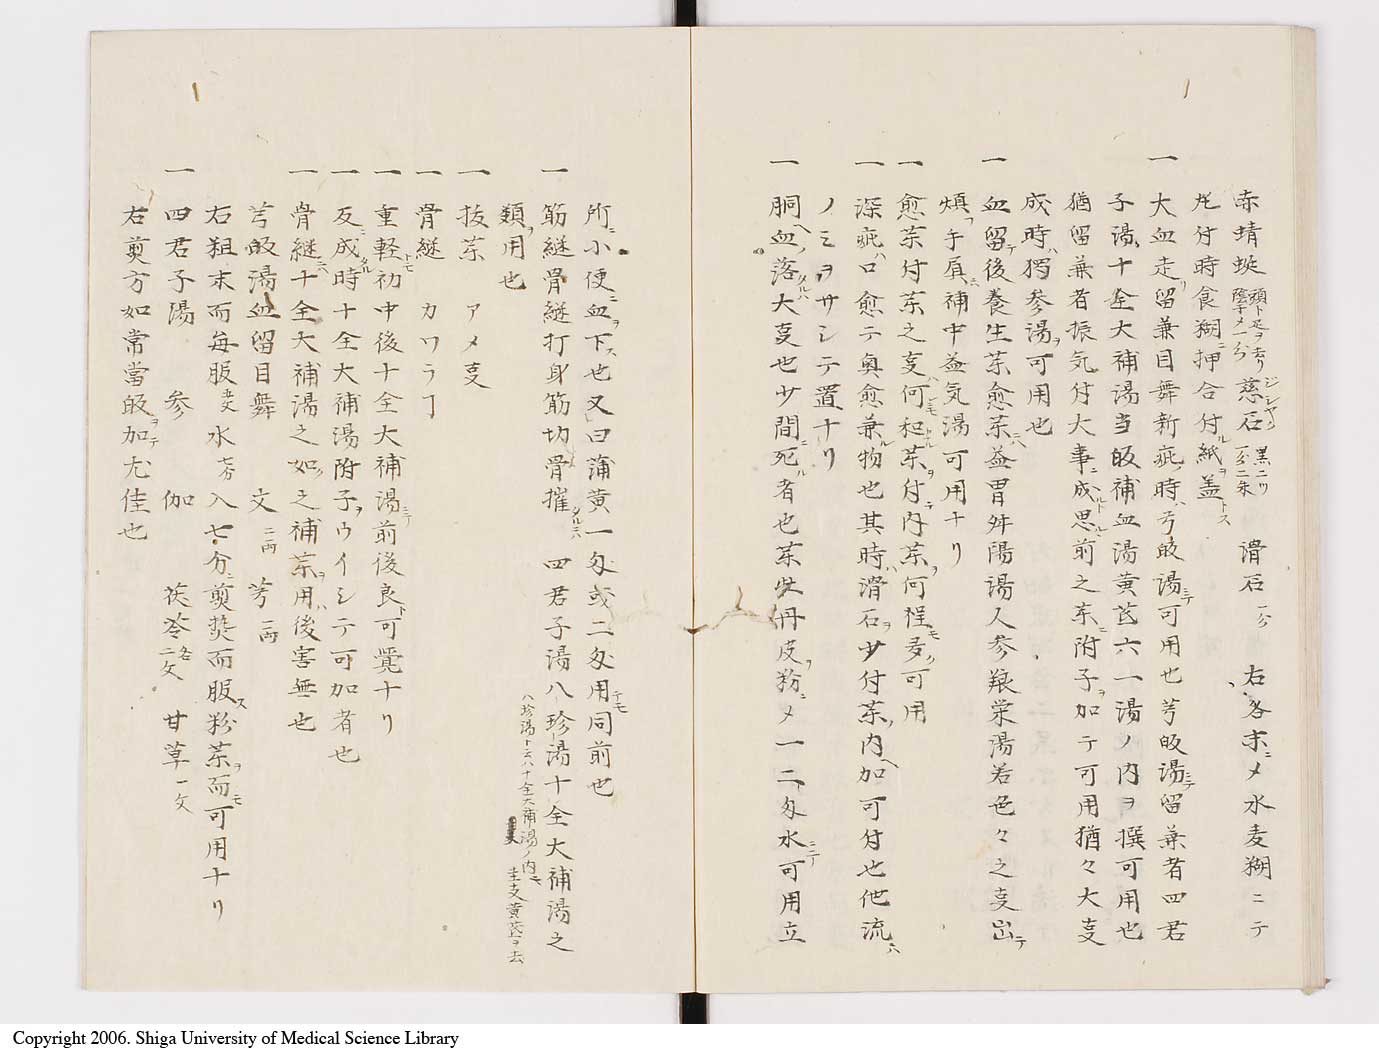 赤蜻蜓 頭ト足ヲ去リ 陰干メ一分 慈石 黒ニリ 一分二朱 滑石 一分 右各末ニメ水麦糊ニテ
丸付時食糊ニ押合付ル紙ヲ蓋トス
一 大血走リ留兼目舞新疵ノ時ハ芎皈湯ニテ可用也芎皈湯ニテ留兼者四君
子湯十全大補湯当皈補血湯黄芪六一湯ノ内ヲ撰可用也
猶留兼者振気付大事ニ成ルト思ハヽ前之薬ニ附子ヲ加テ可用猶々大叓
成時ハ独参湯ヲ可用也
一 血留テ後養生薬愈薬ニハ益胃舛陽湯人参養栄湯若色々之叓出テ
煩ヲ乎眉ニハ補中益気湯可用ナリ
一 愈薬付薬之叓ハ何レモ和ルトル薬ヲ付テ内薬ヲ何程モ多ク可用
一 深疵ハ口愈テ奥愈兼ル物也其時ハ滑石ヲ少付薬ノ内ヘ加可付也他流ハ
ノミヲサシテ置ナリ
一 胴ヘ血ノ落タルハ大叓也少間ニ死ル者也薬牡丹皮ヲ粉ニメ一二匁水ニテ可用立
所ニ小便ニ血ヲ下ス也又曰蒲黄一匁或二匁用テモ同前也
一 筋継骨継打身筋切骨摧タルニハ 四君子湯八珍湯十全大補湯之
類ヲ用也
八珍湯ト云ハ十全大補湯ノ内ニテ 桂支黄芪ヲ去
一 抜薬 アメ叓
一 骨継 カワラ丁
一 重軽トモ初中後十全大補湯ニテ前後良ト可覚ナリ
一 反ニ成タル時十全大補湯附子ヲウイシテ可加者也
一 骨継ニハ十全大補湯之如ク之補薬ヲ用ハ後害無也
芎皈湯血留目舞 文 二両 芎 一両
右粗末而毎服五文水七分入七分ニ煎熋而服ス粉薬ヲ而モ可用ナリ
一 四君子湯 参 伽 茯苓 各二文 甘草一文
右煎方如常當皈ヲ加テ尤佳也
Copyright 2006. Shiga University of Medical Science Library